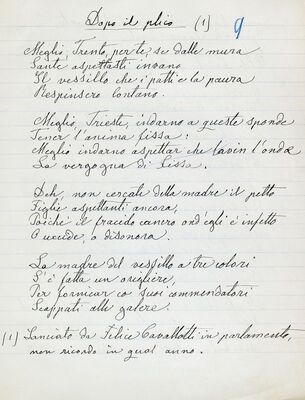 Dopo il plico (1) 9
Meglio, Trento, per te, se dalle mura
Sante aspettasti invano
Il vessillo che i patti e la paura
Respinsero lontano.
Meglio, Trieste, indarno a queste sponde
Tener l'anima fissa:
Meglio indarno aspettar che lavin l'onde
La vergogna di Lissa.
Deh, non cercate della madre il petto
Figlie aspettanti ancora,
Poichè il fracido cancro ond'egli è infetto
O uccide, o disonora.
La madre del vessillo a tre colori
S'è fatta un origliere,
Per fornicar co' suoi commendatori
Scappati alle galere.
(1) Lanciato da Felice Cavallotti in parlamento,
non ricordo in qual anno.